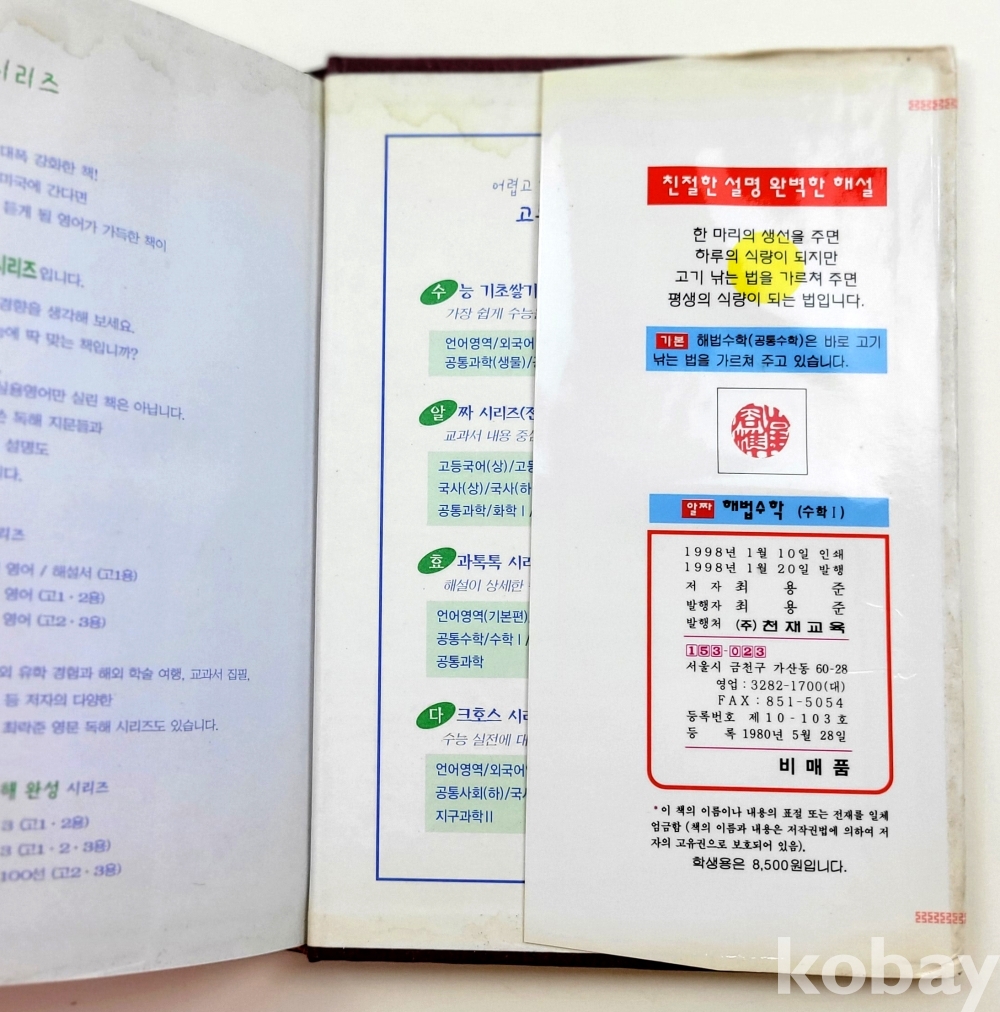 시리즈
대폭 강화한 책!
미국에 간다면
듣게 될 영어가 가득한 책이
시리즈입니다.
경향을 생각해 보세요.
에 딱 맞는 책입니까?
실용영어만 실린 책은 아닙니다.
독해 지문들과
설명도
다.
리즈
영어 / 해설서 (고1용)
영어 (고1·2용)
영어 (고2·3용)
외 유학 경험과 해외 학술 여행, 교과서 집필,
등 저자의 다양한
최락준 영문 독해 시리즈도 있습니다.
해 완성 시리즈
3 (고1·2용)
3 (고1·2·3용)
100선 (고2·3용)
어렵고
고
수능 기초쌓기
가장 쉽게 수능
언어영역/외국어
공통과학(생물)/
알짜 시리즈(전
교과서 내용 중심
고등국어(상)/고등
국사(상)/국사(하
공통과학/화학Ⅰ/
효과톡톡 시리
해설이 상세한
언어영역(기본편)
공통수학/수학Ⅰ/
공통과학
다크호스 시리
수능 실전에 대
언어영역/외국어
공통사회(하)/국사
지구과학Ⅱ
친절한 설명 완벽한 해설
한 마리의 생선을 주면
하루의 식량이 되지만
고기 낚는 법을 가르쳐 주면
평생의 식량이 되는 법입니다.
기본 해법수학(공통수학)은 바로 고기
낚는 법을 가르쳐 주고 있습니다.
알짜 해법수학 (수학Ⅰ)
1998년 1월 10일 인쇄
1998년 1월 20일 발행
저 자 최 용 준
발행자 최 용 준
발행처 (주) 천재교육
153-023
서울시 금천구 가산동 60-28
영업 : 3282-1700(대)
FAX : 851-5054
등록번호 제10-103호
등 록 1980년 5월 28일
비매품
*이 책의 이름이나 내용의 표절 또는 전재를 일체
엄금함 (책의 이름과 내용은 저작권법에 의하여 저
자의 고유권으로 보호되어 있음).
학생용은 8,500원입니다.
kobay